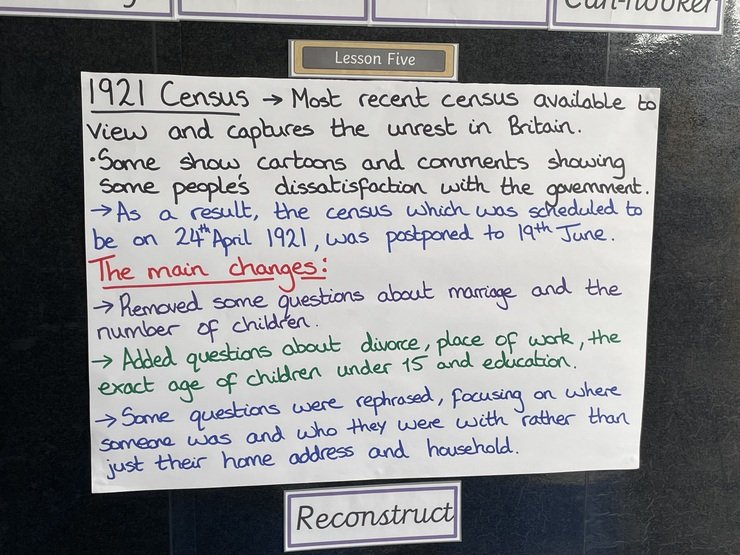 Lesson Five
1921 Census → Most recent census available to
view and captures the unrest in Britain.
• Some show cartoons and comments showing
some people's dissatisfaction with the government.
→ As a result, the census which was scheduled to
be on 24th April 1921, was postponed to 19th June.
The main changes:
→ Removed some questions about marriage and the
number of children.
→ Added questions about divorce, place of work, the
exact age of children under 15 and education.
→ Some questions were rephrased, focusing on where
someone was and who they were with rather than
just their home address and household.
Reconstruct